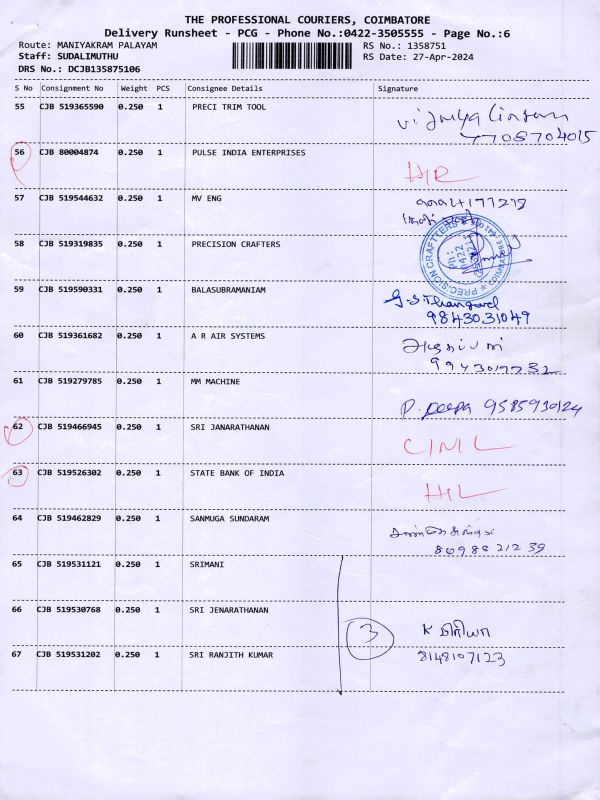 THE PROFESSIONAL COURIERS, COIMBATORE
Delivery Runsheet - PCG - Phone No.:0422-3505555 - Page No.:6
Route: MANIYAKRAM PALAYAM RS No.: 1358751
Staff: SUDALIMUTHU RS Date: 27-Apr-2024
DRS No.: DCJB135875106
S No Consignment No Weight PCS Consignee Details Signature
55 CJB 519365590 0.250 1 PRECI TRIM TOOL
7708704015
56 CJB 80004874 0.250 1 PULSE INDIA ENTERPRISES
57 CJB 519544632 0.250 1 MV ENG
58 CJB 519319835 0.250 1 PRECISION CRAFTERS
PRECISION CRAFTTERS
59 CJB 519590331 0.250 1 BALASUBRAMANIAM G.S Thangavel
9843031049
60 CJB 519361682 0.250 1 A R AIR SYSTEMS
61 CJB 519279785 0.250 1 MM MACHINE
P. Deepa 9585930124
62 CJB 519466945 0.250 1 SRI JANARATHANAN
63 CJB 519526302 0.250 1 STATE BANK OF INDIA
64 CJB 519462829 0.250 1 SANMUGA SUNDARAM
8698821239
65 CJB 519531121 0.250 1 SRIMANI
66 CJB 519530768 0.250 1 SRI JENARATHANAN
3 K பிரியா
67 CJB 519531202 0.250 1 SRI RANJITH KUMAR 8148107123